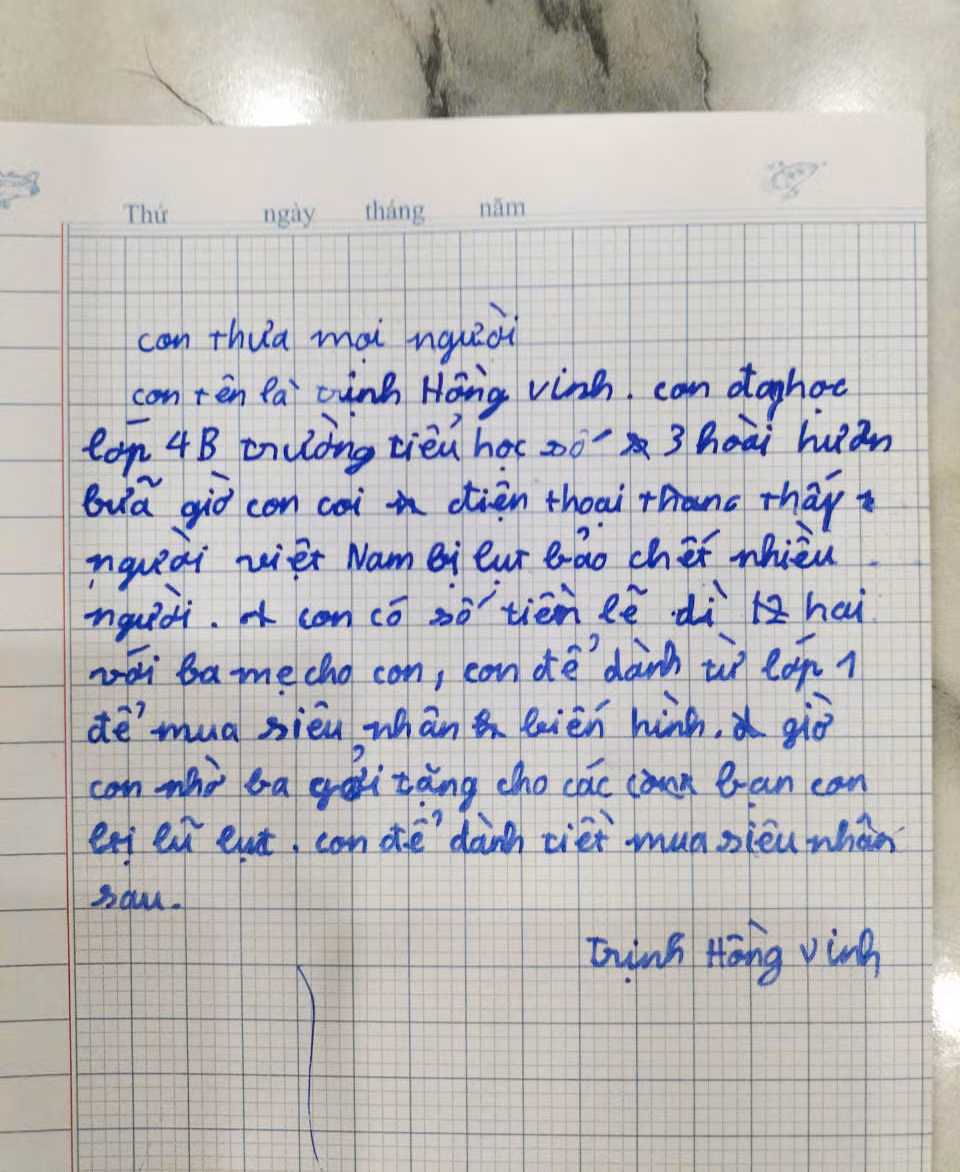 Thứ ngày tháng năm
con thưa mọi người
con tên là trịnh Hồng vinh. con đag học
lớp 4B trường tiểu học số 3 hoài hươn
bữa giờ con coi điện thoại thấy
người việt Nam bị lụt bảo chết nhiều
người. con có số tiền lẽ dì hai
với ba mẹ cho con, con để dành từ lớp 1
để mua siêu nhân biến hình. giờ
con nhờ ba gởi tặng cho các bạn con
bị lũ lụt. con để dành tiết mua siêu nhân
sau.
trịnh Hồng vinh